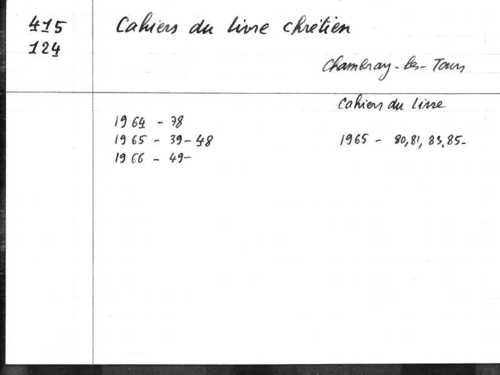 415
124
Cahiers du livre chrétien
Chambray-les-Tours
Cahiers du livre
1964 - 78
1965 - 39-48
1966 - 49-
1965 - 80,81, 83,85-